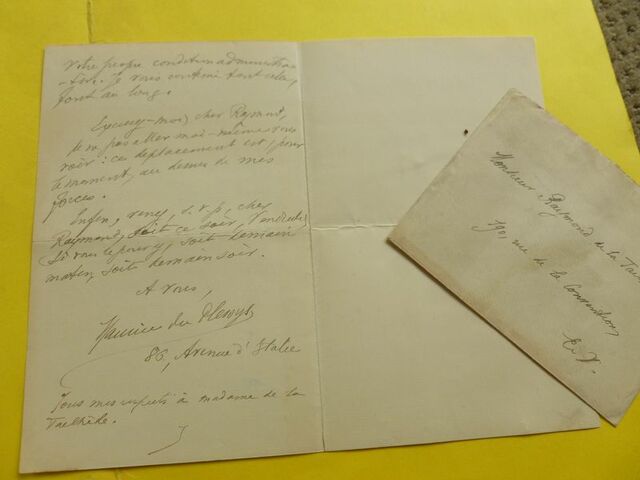 votre propre condition administra-
-tive. Je vous conterai tout cela,
tout au long.
Excusez-moi, cher Raymond,
de ne pas aller moi-même vous
voir : ce déplacement est, pour
le moment, au dessus de mes
forces.
Enfin, venez, s.v.p., cher
Raymond, soit ce soir, Vendredi,
si vous le pouvez, soit demain
matin, soit demain soir.
A vous,
Maurice du Plessys
86, Avenue d'Italie
Tous mes respects à madame de la
Tailhède.
Monsieur Raymond de la Tai
190, rue de la Convention,
E. V.